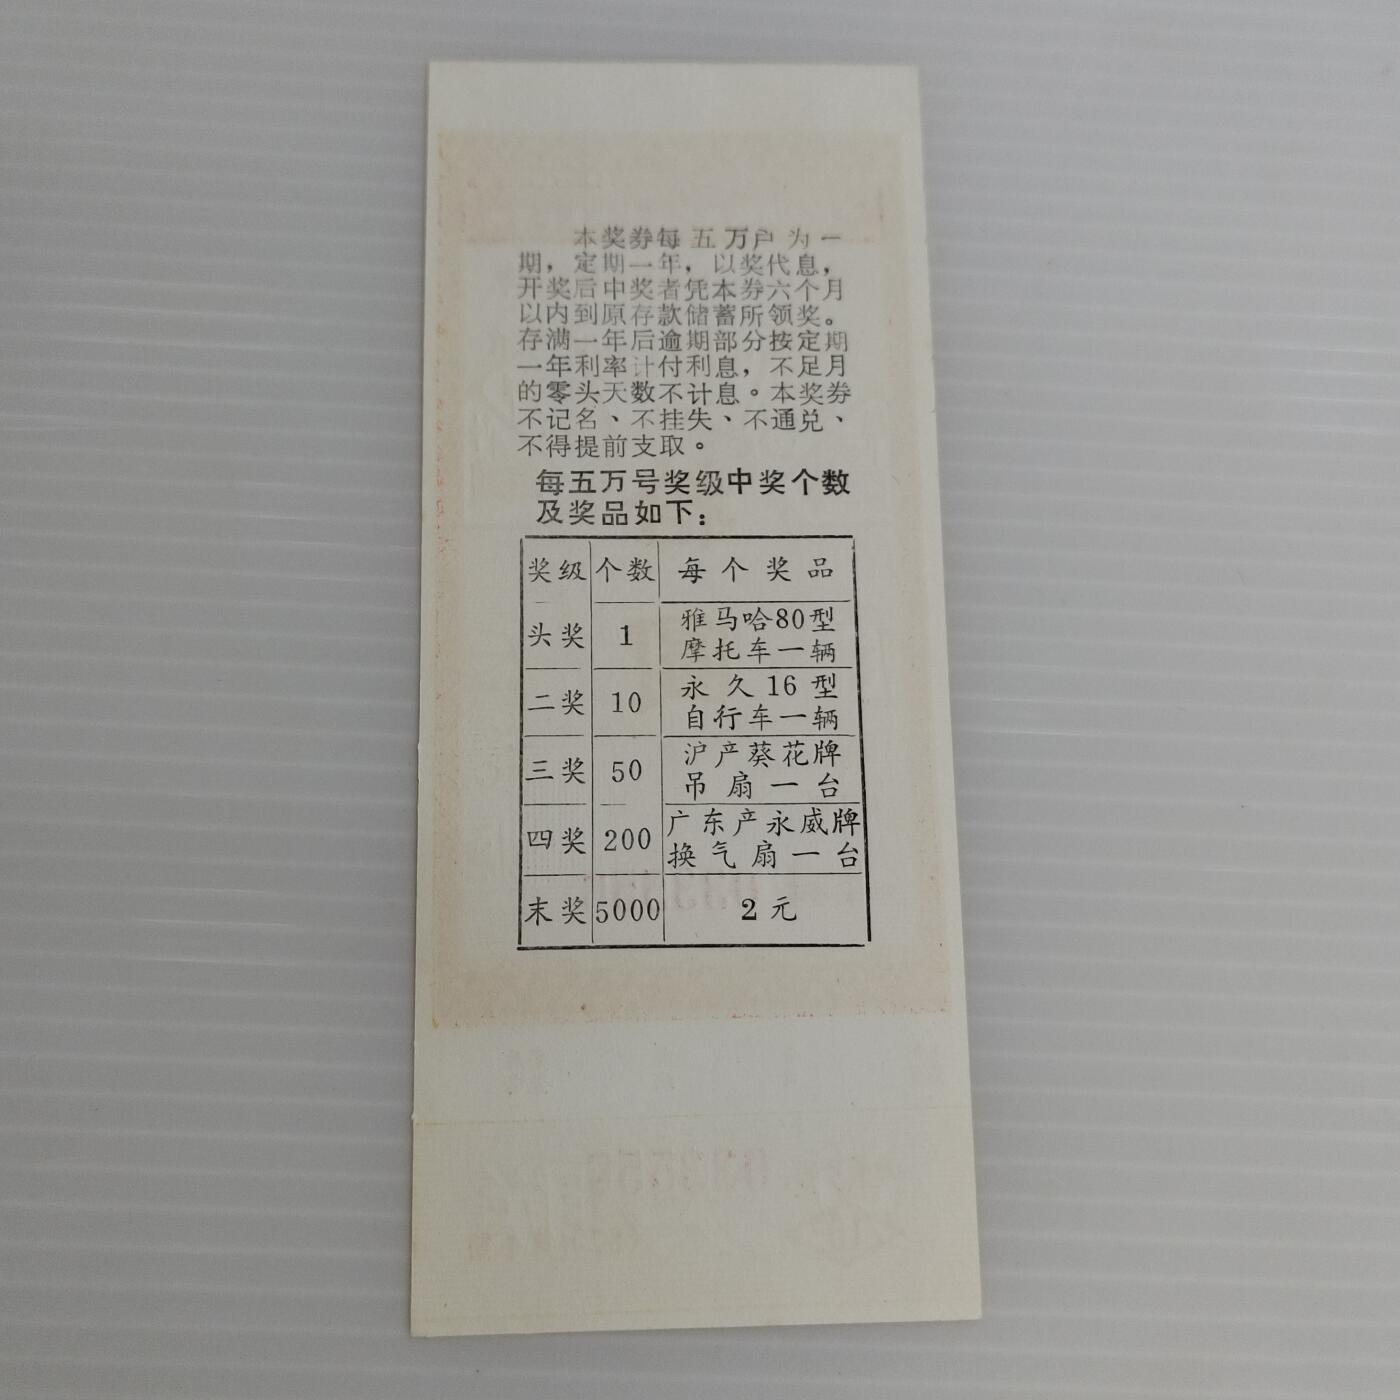 本奖券每五万户为一
期，定期一年，以奖代息，
开奖后中奖者凭本券六个月
以内到原存款储蓄所领奖。
存满一年后逾期部分按定期
一年利率计付利息，不足月
的零头天数不计息。本奖券
不记名、不挂失、不通兑、
不得提前支取。
每五万号奖级中奖个数
及奖品如下：
奖级 个数 每个奖品
头奖 1 雅马哈80型
摩托车一辆
二奖 10 永久16型
自行车一辆
三奖 50 沪产葵花牌
吊扇一台
四奖 200 广东产永威牌
换气扇一台
末奖 5000 2元